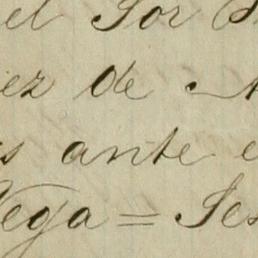 el Sor
ez de
s ante e
Vega = Ses